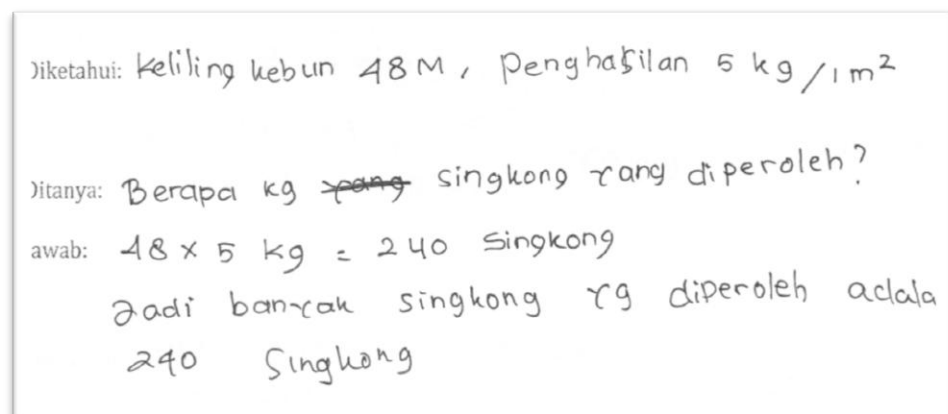 Diketahui: Keliling kebun 48 M, Penghasilan 5 kg/1 m²
Ditanya: Berapa kg yang singkong yang diperoleh?
awab: 48 x 5 kg = 240 Singkong
Jadi banyak singkong yg diperoleh adala
240 Singkong